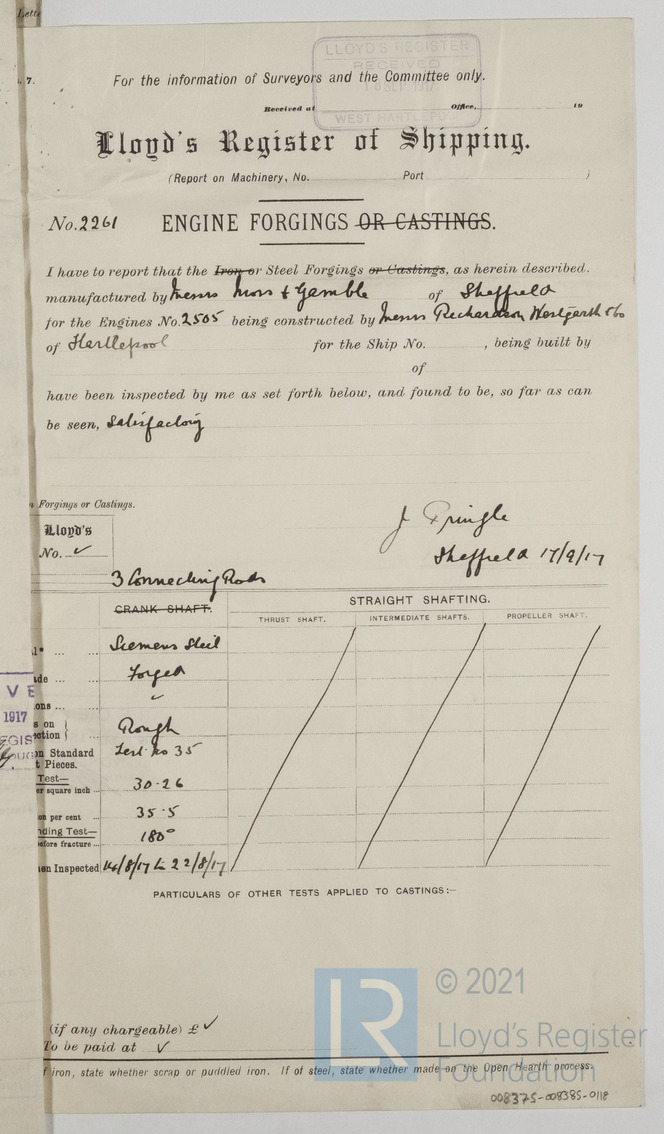 Lette
7.
LLOYD'S REGISTER
RECEIVED
SEP. 1917
WEST HARTLEPOOL
For the information of Surveyors and the Committee only.
Received at Office, 19
Lloyd's Register of Shipping.
(Report on Machinery, No. Port )
No. 2261 ENGINE FORGINGS OR CASTINGS.
I have to report that the Iron or Steel Forgings or Castings, as herein described.
manufactured by Messrs Moss & Gamble of Sheffield
for the Engines No. 2505 being constructed by Messrs Richardson Westgarth & Co
of Hartlepool for the Ship No. , being built by
of
have been inspected by me as set forth below, and found to be, so far as can
be seen, satisfactory
Forgings or Castings.
Lloyd's
No. ✓
J Pringle
Sheffield 17/9/17
3 Connecting Rods
CRANK SHAFT.
STRAIGHT SHAFTING.
THRUST SHAFT. INTERMEDIATE SHAFTS. PROPELLER SHAFT.
Siemens Steel
Forged
✓
Rough
on Standard Test No 35
t Pieces.
Test—
er square inch 30.26
on per cent 35.5
nding Test— 180°
efore fracture
en Inspected 14/8/17 to 22/8/17
VE
1917
EGIS
PARTICULARS OF OTHER TESTS APPLIED TO CASTINGS:—
(if any chargeable) £ ✓
To be paid at ✓
f iron, state whether scrap or puddled iron. If of steel, state whether made on the Open Hearth process.
LR
© 2021
Lloyd's Register
Foundation
008375-008385-0118